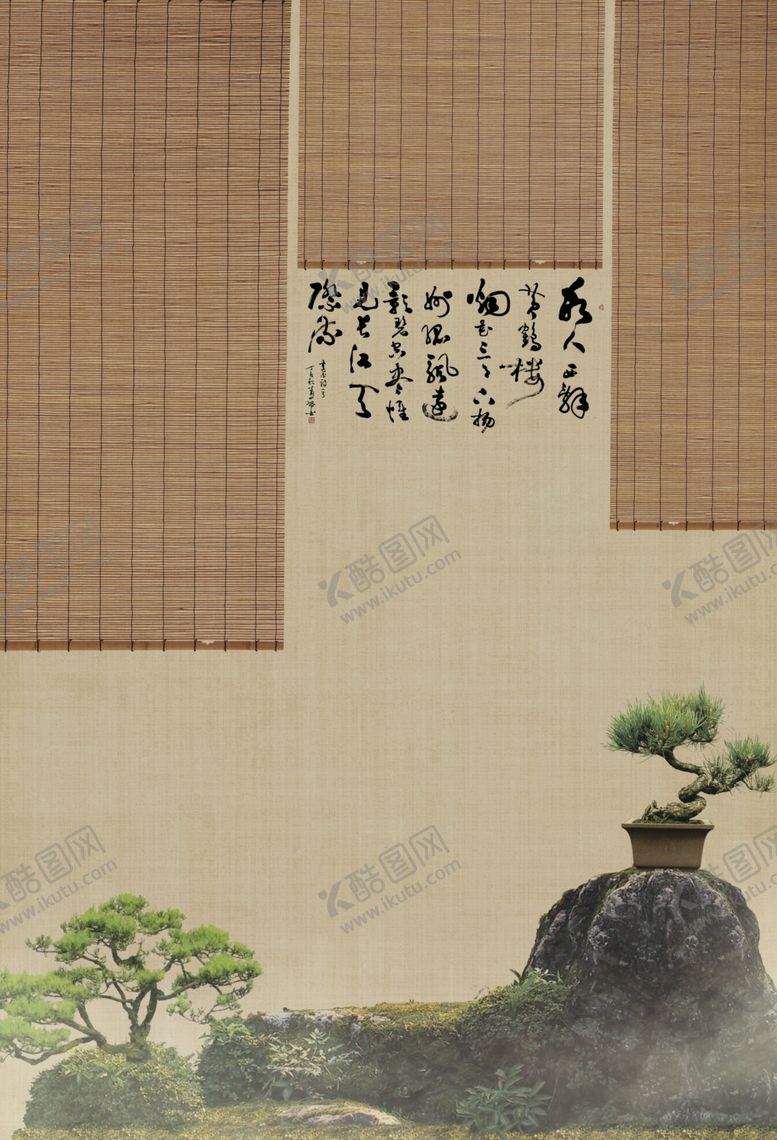 故人西辞
黄鶴楼
烟花三月下扬
州孤帆遠
影碧空尽惟
见长江天
际流
酷图网
www.ikutu.com
酷图网
www.ikutu.com
酷图网
www.ikutu.com
酷图网
www.ikutu.com